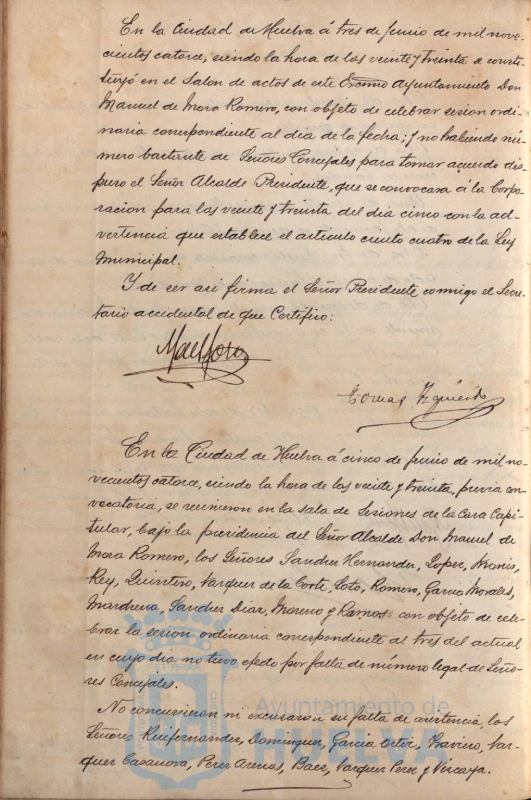 En la Ciudad de Huelva á tres de Junio de mil nove-
cientos catorce, siendo la hora de las veinte y treinta se consti-
tuyó en el Salon de actos de este Excmo Ayuntamiento Don
Manuel de Mora Romero, con objeto de celebrar sesion ordi-
naria correspondiente al dia de la fecha; y no habiendo nú-
mero bastante de Señores Concejales para tomar acuerdo dis-
puso el Señor Alcalde Presidente, que se convocara á la Corpo-
racion para las veinte y treinta del dia cinco con la ad-
vertencia que establece el articulo ciento cuatro de la Ley
Municipal.
Y de ser asi firma el Señor Presidente conmigo el Secre-
tario accidental de que Certifico:
Tomas Izquierdo
En la Ciudad de Huelva á cinco de Junio de mil no-
vecientos catorce, siendo la hora de las veinte y treinta, previa con-
vocatoria, se reunieron en la sala de Sesiones de la Casa Capi-
tular, bajo la presidencia del Señor Alcalde Don Manuel de
Mora Romero, los Señores Sanchez Hernandez, Lopez,
Rey, Quintero, Vazquez de la Corte, Soto, Romero, Garcia Morales,
Sanchez Diaz, Moreno y Ramos con objeto de cele-
brar la sesion ordinaria correspondiente al tres del actual
en cuyo dia no tuvo efecto por falta de número legal de Seño-
res Concejales.
No concurrieron ni excusaron su falta de asistencia, los
Señores Ruifernandez, Dominguez, Garcia Ortiz, Vaz-
quez Casanova, Perez Arenas, Baez, Vazquez Perez y Vizcaya.
Ayuntamiento de
HUELVA